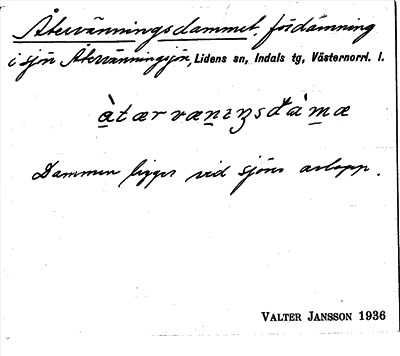 Återvänningsdammet, fördämning
i sjön Återvänningsjön, Lidens sn, Indals tg, Västernorrl. l.
àtærvænıŋsdàmæ
Dammen ligger vid sjöns avlopp.
VALTER JANSSON 1936